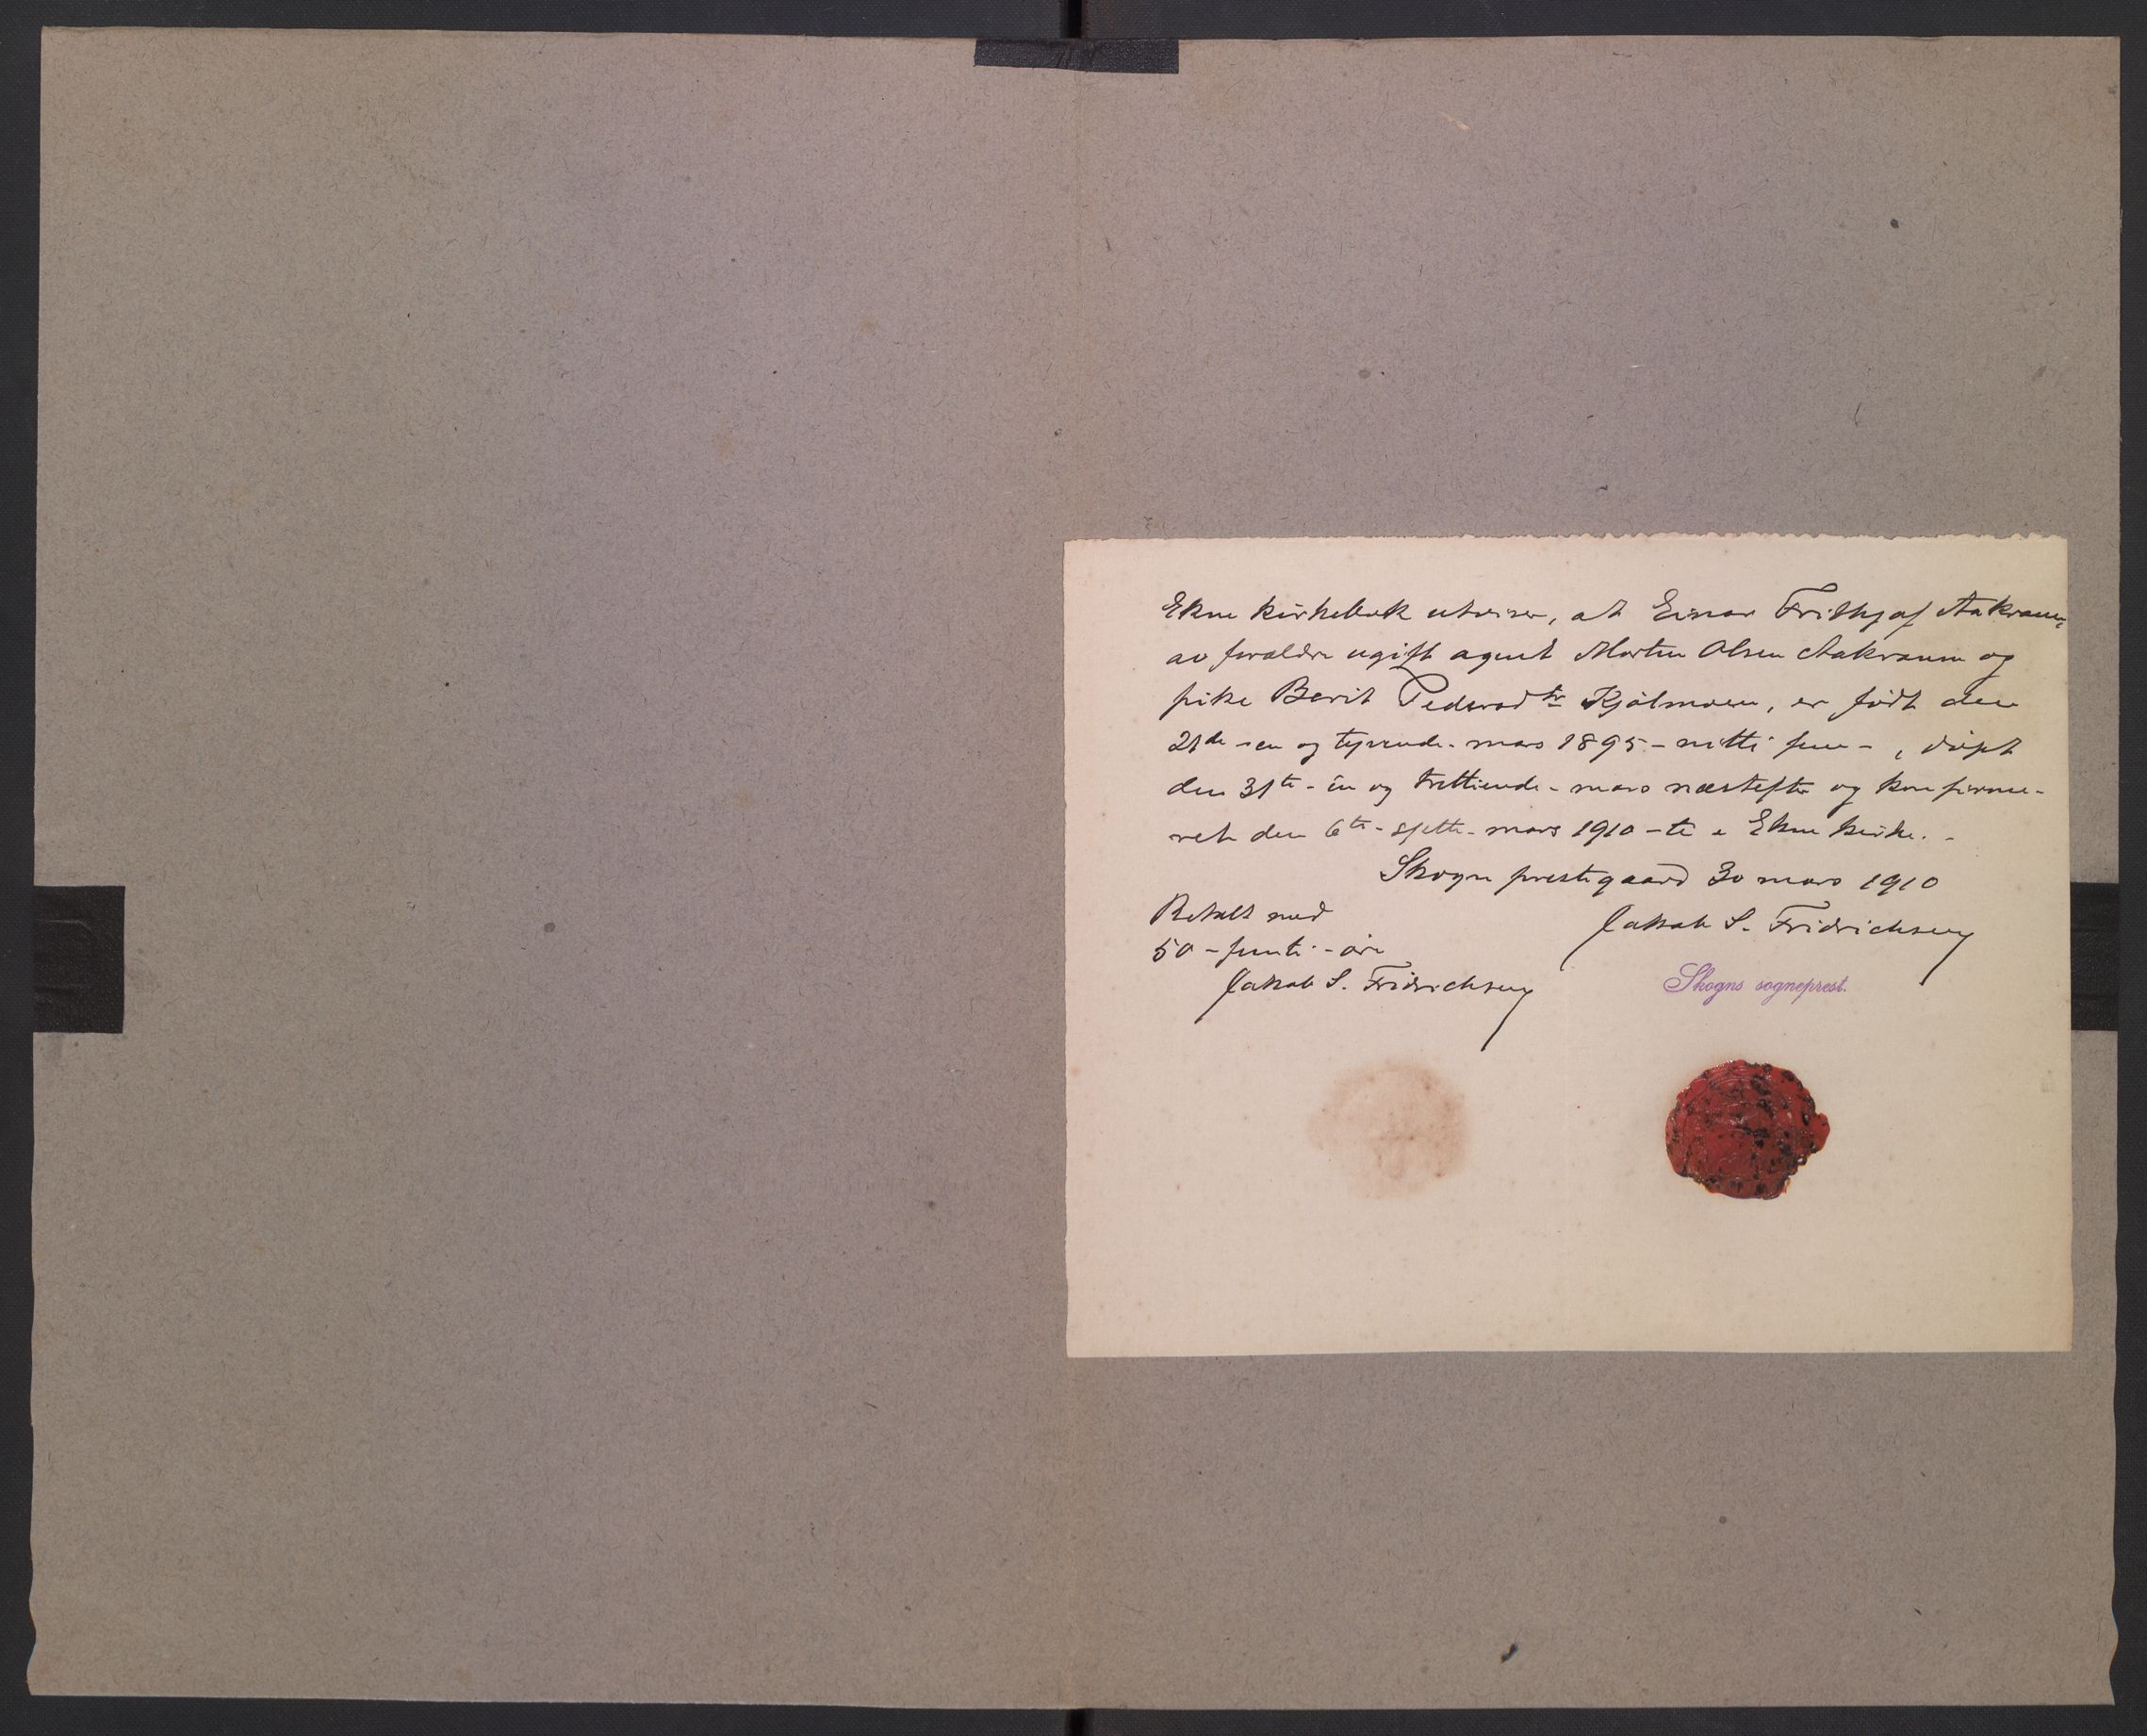 Ekne kirkebok utviser, at Einar Frithjof Aakran,
av foreldre ugift agent Morten Olsen Aakrann og
pike Berit Pedersdtr Kjölmoen, er födt den
21de - en og tyvende - mars 1895 - nitti fem - , döpt
den 31te - en og trettiende - mars næstefter og konfirme-
ret den 6te - sjette - mars 1910 - ti i Ekne kirke. -
Skogn prestegaard 30 mars 1910
Jakob S. Fridrichsen
Skogns sogneprest.
Betalt med
50 - femti - öre
Jakob S. Fridrichsen